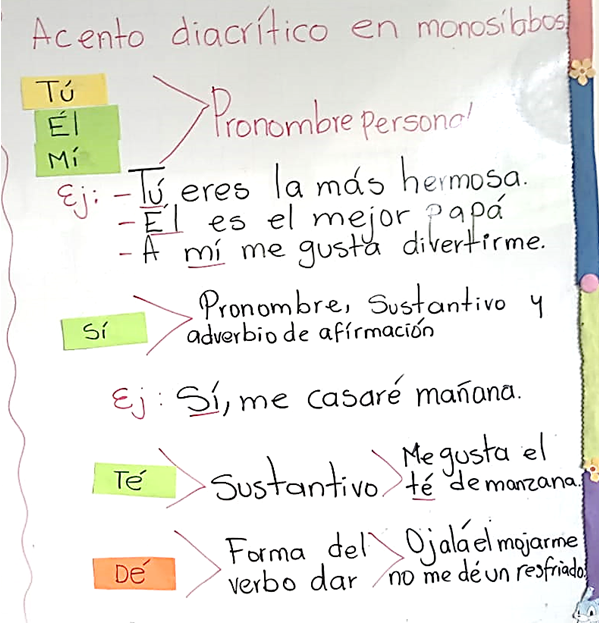 Acento diacrítico en monosílabos
Tú
Él
Mí
Pronombre personal
Ej: - Tú eres la más hermosa.
- Él es el mejor papá
- A mí me gusta divertirme.
Sí
Pronombre, Sustantivo y
adverbio de afirmación
Ej: Sí, me casaré mañana.
Té
Sustantivo
Me gusta el
té de manzana.
Dé
Forma del
verbo dar
Ojalá el mojarme
no me dé un resfriado.